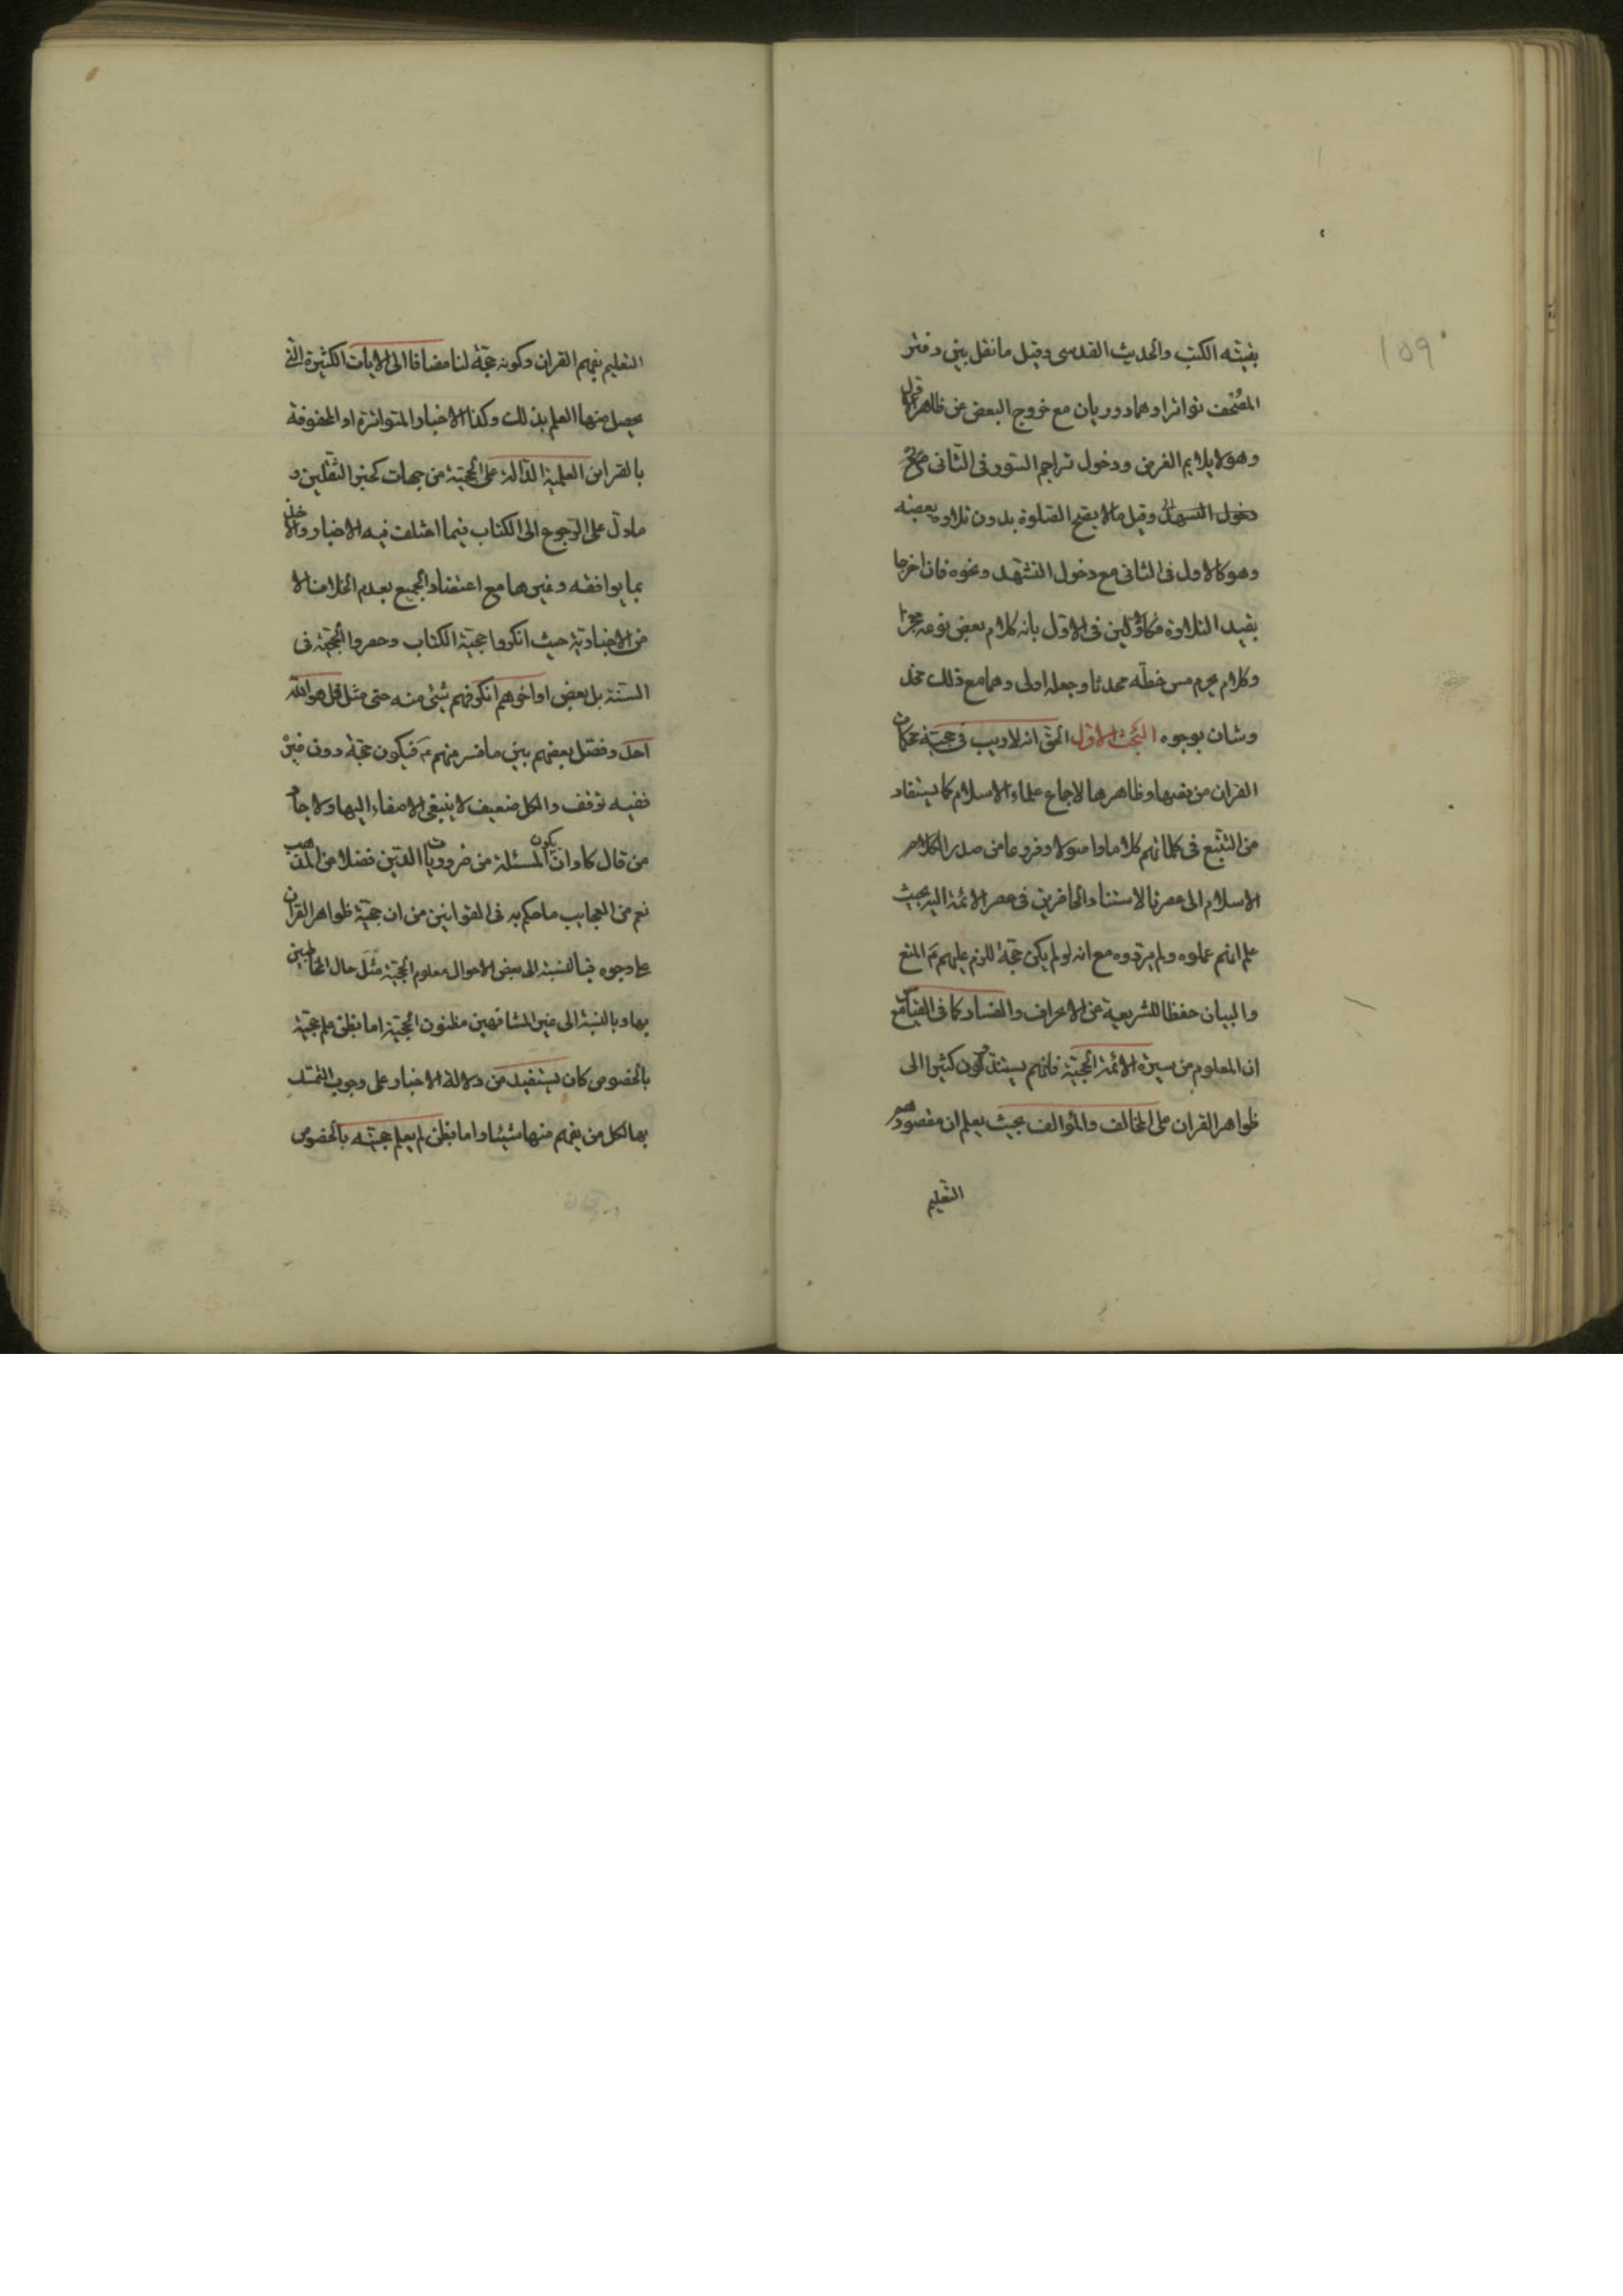 ١٥٩
بقيته الكتب والحديث القدسى وقيل ما نقل بين دفتى
المصحف تواترا وهما دوريان مع خروج البعض عن ظاهر
وهو لا يلايم الغرض ودخول تراجم السور فى الثانى
دخول التشهد وقيل ما لا يصح الصلوة بدون تلاوة بعضه
وهو كالاول فى الثانى مع دخول التشهد ونحوه فان اخرجا
بقيد التلاوة فكالاولين فى الاول بانه كلام بعض نوعه معجز
وكلام يحرم مس خطه محدثا وجعله اولى وهما مع ذلك
بوجوه البحث الاول الحق انه لا ريب فى حجية محكمات
القران من نصها وظاهرها لاجماع علماء الاسلام كما يستفاد
من التتبع فى كلماتهم كلاما واصولا وفروعا من صدر
الاسلام الى عصرنا لاستناد الحاضرين فى عصر الائمة اليه بحيث
علم انهم عملوه ولم يردوه مع انه لو لم يكن حجة للزم عليهم ع المنع
والبيان حفظا للشريعة عن الانحراف والفساد كما فى القياس مع
ان المعلوم من سيرة الائمة الحجية فانهم يستندون كثيرا الى
ظواهر القران على المخالف والموالف بحيث يعلم ان مقصودهم
التعليم
التعليم بفهم القران وكونه حجة لنا مضافا الى الايات الكثيرة التى
يحصل منها العلم بذلك وكذا الاخبار المتواترة او المحفوفة
بالقراين العلمية الدالة على الحجية من جهات كخبر الثقلين و
ما دل على الرجوع الى الكتاب فيما اختلف فيه الاخبار والاخذ
بما يوافقه وغيرها مع اعتضاد الجميع بعدم الخلاف الا
من الاخبارية حيث انكروا حجية الكتاب وحصروا الحجية فى
السنة بل بعض اواخرهم انكر فهم شئ منه حتى مثل قل هو الله
احد وفصل بعضهم بين ما فسر منهم ع فيكون حجة دون غيره
ففيه توقف والكل ضعيف لا ينبغى الاصغاء اليها ولا
من قال كاد ان يكون المسئلة من ضروريات الدين فضلا من المذهب
نعم من العجايب ما حكم به فى القوانين من ان حجية ظواهر القران
على وجوه فبالنسبة الى بعض الاحوال معلوم الحجية مثل حال المخاطبين
بها وبالنسبة الى غير المشافهين مظنون الحجية اما بظن علم حجيته
بالخصوص كان يستفيد من دلالة الاخبار على وجوب التمسك
بها لكل من يفهم منها شيئا واما بظن لم يعلم حجيته بالخصوص